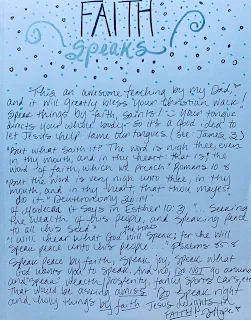 FAITH
Speaks
This an awesome teaching by my Dad,
and it will greatly bless your Christian walk!
Speak things by faith, saints! Your tongue
directs your whole body so it's a good idea to
let Jesus help tame our tongues. (see James 3)
"But what saith it? The word is nigh thee, even
in thy mouth, and in thy heart: that is, the
word of faith, which we preach" Romans 10:8
"But the word is very nigh unto thee, in thy
mouth, and in thy heart, that thou mayest
do it." Deuteronomy 30:14
of Mordecai, it says in Esther 10:3, "Seeking
the wealth of his people, and speaking peace
to all his seed"
"I will hear what God the LORD will speak: for he will
speak peace unto his people..." Psalms 85:8
Speak peace by faith, speak joy, speak what
God wants you to speak. And no, DO NOT go around
and speak wealth, prosperity, fancy sports cars, etc.
That would be asking amiss. Do speak right
and holy things by faith. Jesus delights in
FAITH!